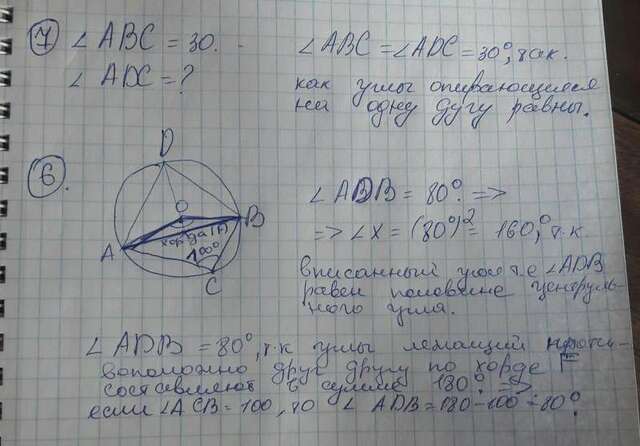 7) ∠ABC = 30.
∠ADC = ?
∠ABC = ∠ADC = 30°, так.
как углы опирающиеся
на одну дугу равны.
6.
D
O
B
A
хорда
100°
C
∠ADB = 80° =>
=> ∠X = (80°)2 = 160,° т.к.
вписанный угол т.е ∠ADB
равен половине централь-
ного угла.
∠ADB = 80°, т.к углы лежащий проти-
воположно друг другу по хорде F
составляют в сумме 180° =>
если ∠ACB = 100, то ∠ADB = 180 - 100 = 80°